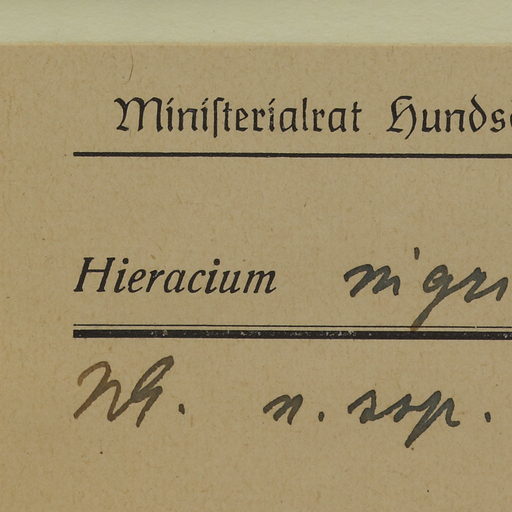 Miniſterialrat Hunds
Hieracium nigri
n. ssp.